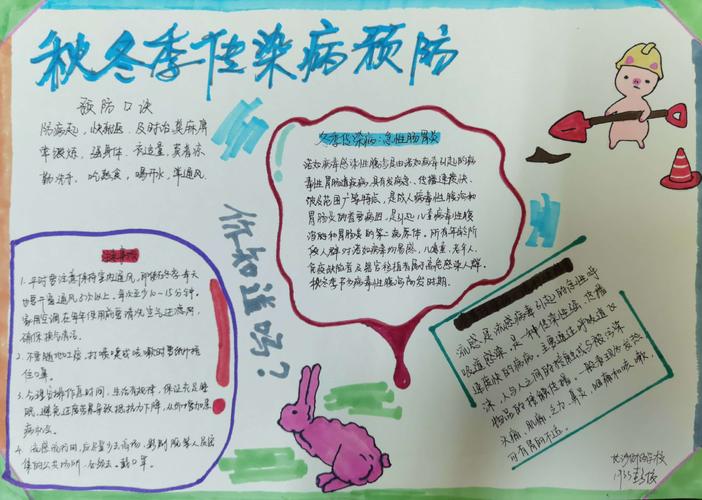 秋冬季传染病预防
预防口诀
防病起，快就医，及时治莫麻痹
常锻炼，强身体，衣适量，莫着凉
勤洗手，吃熟食，喝开水，常通风
冬季传染病：急性肠胃炎
诺如病毒感染性腹泻是由诺如病毒引起的病
毒性胃肠道疾病，具有发病急、传播速度快、
波及范围广等特点，是成人病毒性腹泻和
胃肠炎的首要病因，是引起儿童病毒性腹
泻和胃肠炎的第二病原体。所有年龄阶
段人群对诺如病毒均易感，儿童、老年人、
免疫缺陷者及器官移植者属于高危感染人群。
秋冬季节为病毒性腹泻高发时期
你知道吗？
注意事项
1. 平时要注意保持室内通风，即使在冬季每天
也要开窗通风
次以上，每次至少10-15分钟。
家用空调在每年使用前要清洗空气过滤网，
确保换气清洁。
2. 不要随地吐痰，打喷嚏或咳嗽时要掩捂
住口鼻。
3. 合理安排作息时间，生活有规律，保证充足睡
眠，避免过度劳累导致抵抗力下降，从而增加患
病机会。
4. 流感流行期间，应尽量少去商场、影剧院等人员密
集的公共场所，必须去，戴口罩。
流感是流感病毒引起的急性呼
吸道感染，是一种传染性强、传播
速度快的疾病。主要通过呼吸道飞
沫、人与人之间的接触或与被污染
物品的接触传播。一般表现为发热
头痛、肌痛、乏力、鼻炎、咽痛和咳嗽，
可有胃肠不适。
长沙
学校